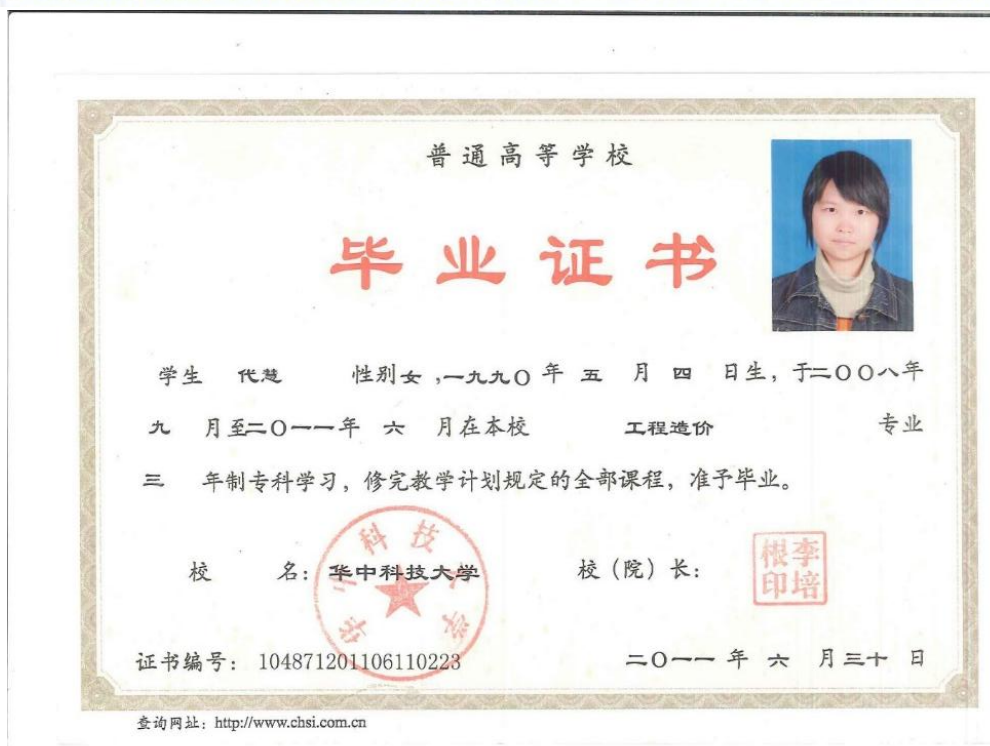 普通高等学校
毕业证书
学生 代慧 性别女,一九九〇年 五 月 四 日生, 于二〇〇八年
九 月至二〇一一年 六 月在本校 工程造价 专业
三 年制专科学习, 修完教学计划规定的全部课程, 准予毕业。
校 名: 华中科技大学 校(院)长:
华中科技大学
李培根印
证书编号: 104871201106110223 二〇一一年 六 月三十日
查询网址: http://www.chsi.com.cn